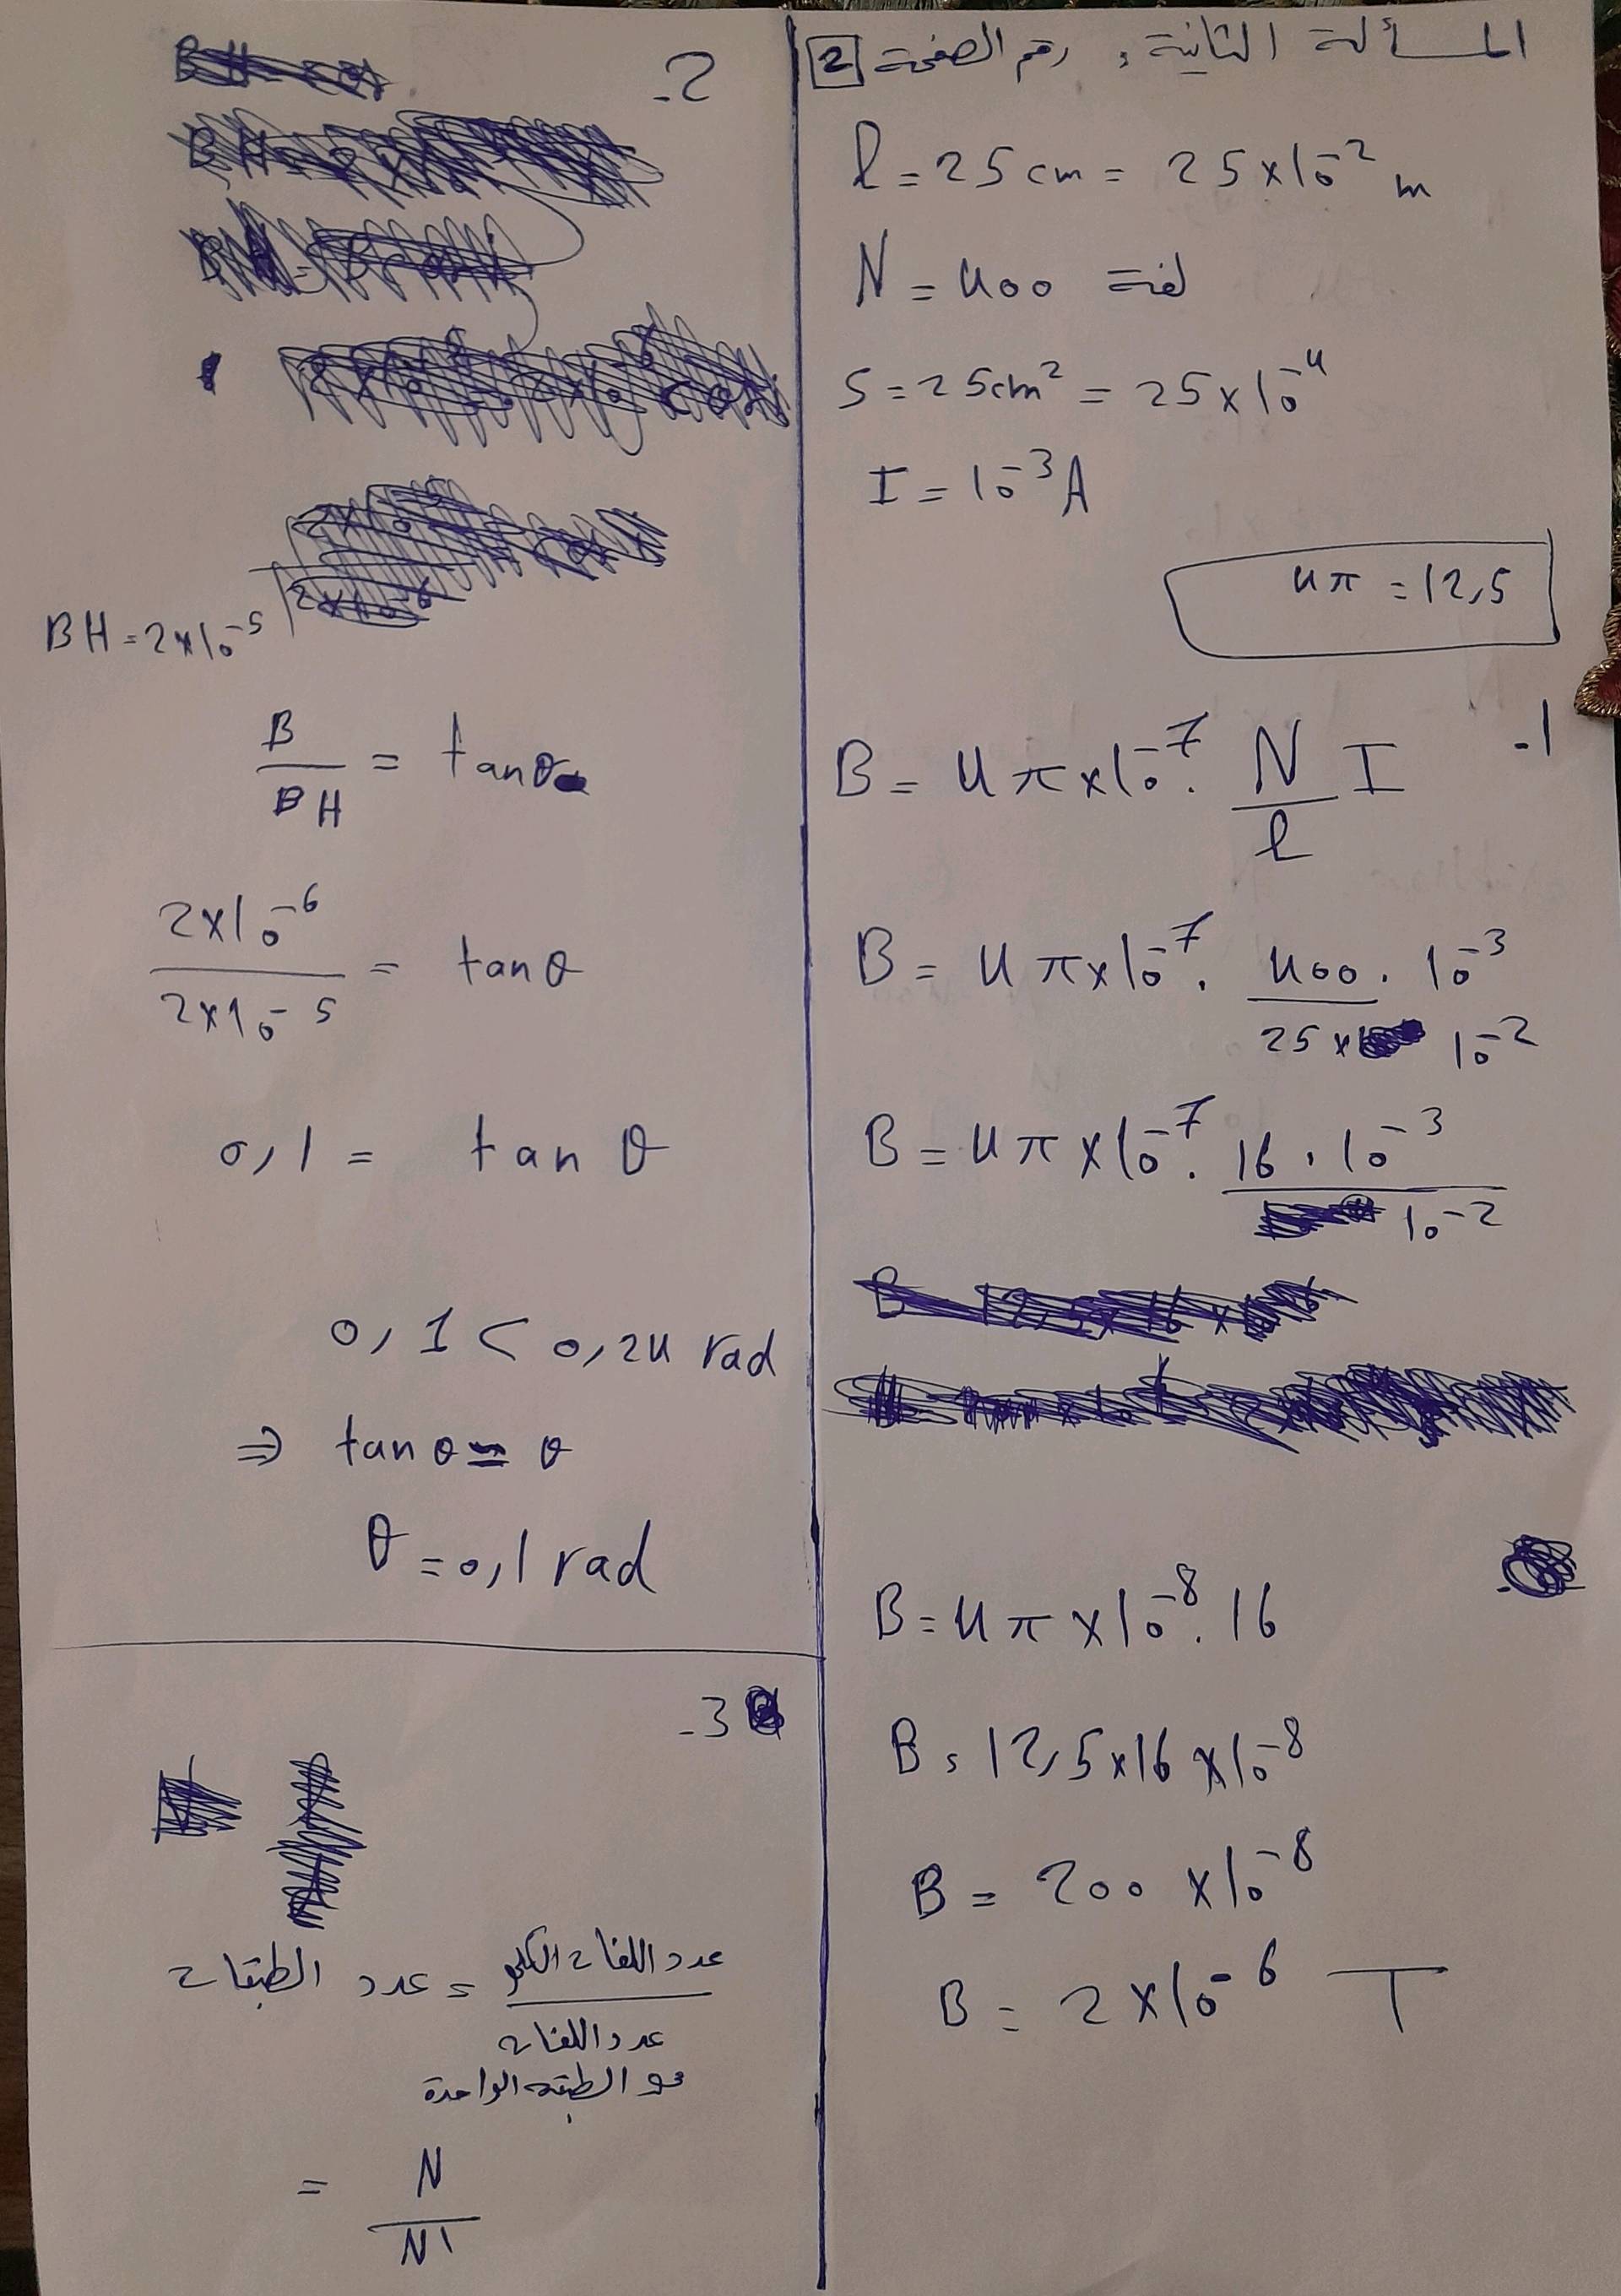 المسألة الثانية، رقم الصفحة 2
l = 25 cm = 25 × 10^-2 m
N = 400 لفة
S = 25 cm² = 25 × 10^-4
I = 10^-3 A
4π = 12,5
1-
B = 4π × 10^-7 . N/l I
B = 4π × 10^-7 . 400 . 10^-3 / 25 × 10^-2
B = 4π × 10^-7 . 16 . 10^-3 / 10^-2
B = 4π × 10^-8 . 16
B = 12,5 × 16 × 10^-8
B = 200 × 10^-8
B = 2 × 10^-6 T
2-
BH = 2 × 10^-5
B/BH = tan θ
2 × 10^-6 / 2 × 10^-5 = tan θ
0,1 = tan θ
0,1 < 0,24 rad
⇒ tan θ ≃ θ
θ = 0,1 rad
3-
عدد الطبقات = عدد اللفات الكلي
عدد اللفات
في الطبقة الواحدة
= N/N'